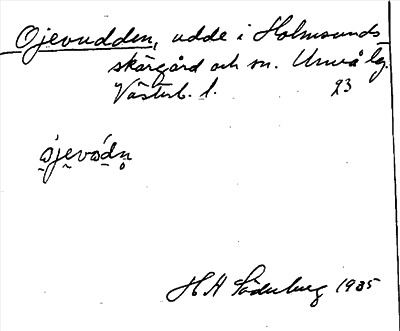 Ojevudden, udde i Holmsunds
skärgård och sn. Umeå lg.
Västerb. l. 93
ojevodn
H A Söderberg 1935